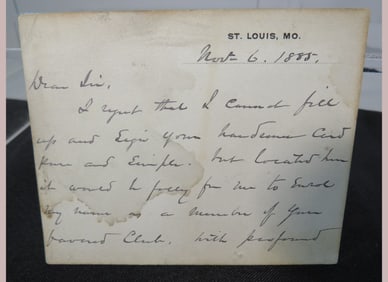 ST. LOUIS, MO.
Nov 6. 1885.
Dear Sir,
I regret that I cannot fill
up and Sign your handsome Card
pure and Simple. but located here
it would be folly for me to Enrol
my name as a member of your
favored Club. with profound